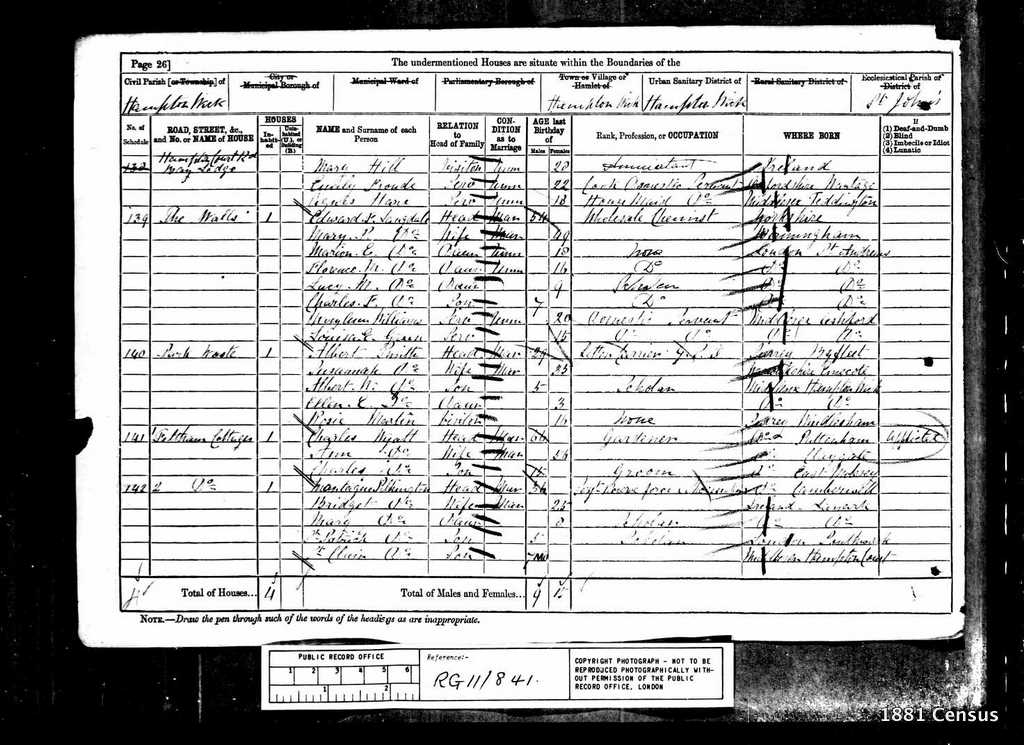 Page 26]
The undermentioned Houses are situate within the Boundaries of the
Civil Parish [or Township] of
City or Municipal Borough of
Municipal Ward of
Parliamentary Borough of
Town or Village or Hamlet of
Urban Sanitary District of
Rural Sanitary District of
Ecclesiastical Parish or District of
Hampton Wick
Hampton Wick
Hampton Wick
St John's
No. of Schedule
ROAD, STREET, &c., and No. or NAME of HOUSE
HOUSES
Inhabited
Uninhabited (U.), or Building (B.)
NAME and Surname of each Person
RELATION to Head of Family
CONDITION as to Marriage
AGE last Birthday of
Males
Females
Rank, Profession, or OCCUPATION
WHERE BORN
If
(1) Deaf-and-Dumb
(2) Blind
(3) Imbecile or Idiot
(4) Lunatic
Hampton Court Rd
138 Lodge Mary Hill Visitor Unm 20 Ireland
Emily Serv Unm 22 Cook Domestic Servant Wantage
Serv Unm 18 House Maid Do Middlesex Teddington
139 The Walls 1 Edward F. Langdale Head Mar 54 Wholesale Chemist Yorkshire
Mary P. Do Wife Mar 49 Birmingham
Marion E. Do Unm 18 None London St Andrews
Florence M. Do Daur Unm 16 Do Do Do
Lucy M. Do Daur 9 Scholar Do Do
Charles F. Do Son 7 Do Do Do
Williams Serv Unm 20 Domestic Servant Middlesex Ashford
Louisa E. Serv 15 Do Do Do Do
140 Park 1 Albert Smith Head Mar 29 Letter Carrier G.P.O Surrey Byfleet
Susannah Do Wife Mar 25
Albert W. Do Son 5 Scholar Middlesex Hampton Wick
Ellen E. Do Daur 3 Do Do
Rosie Martin 16 None Surrey Windlesham
141 1 Feltham Cottages 1 Charles Wyatt Head Mar 56 Gardener Do Puttenham
Ann Do Wife Mar 56 Do Claygate
Charles Do Son 15 Groom Do East Molesey
142 2 Do 1 Montague Pilkington Head Mar 36 Do Camberwell
Bridget Do Wife Mar 25 Ireland
Mary Do Daur 8 Scholar Do Do
Patrick Do Son 5 Scholar London Southwark
Do Son 7 Mo Middlesex Hampton Court
4 Total of Houses... 4
Total of Males and Females... 9 15
NOTE.—Draw the pen through such of the words of the headings as are inappropriate.
PUBLIC RECORD OFFICE
1 2 3 4 5 6
1 2
Reference:-
RG 11/841.
COPYRIGHT PHOTOGRAPH - NOT TO BE
REPRODUCED PHOTOGRAPHICALLY WITH-
OUT PERMISSION OF THE PUBLIC
RECORD OFFICE, LONDON
1881 Census